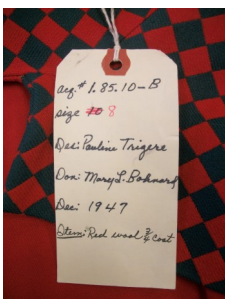 acq.# 1.85.10-B
size 10 8
Des: Pauline Trigere
Don: Mary L. Bohnard
Dec: 1947
Item: Red wool 3/4 coat